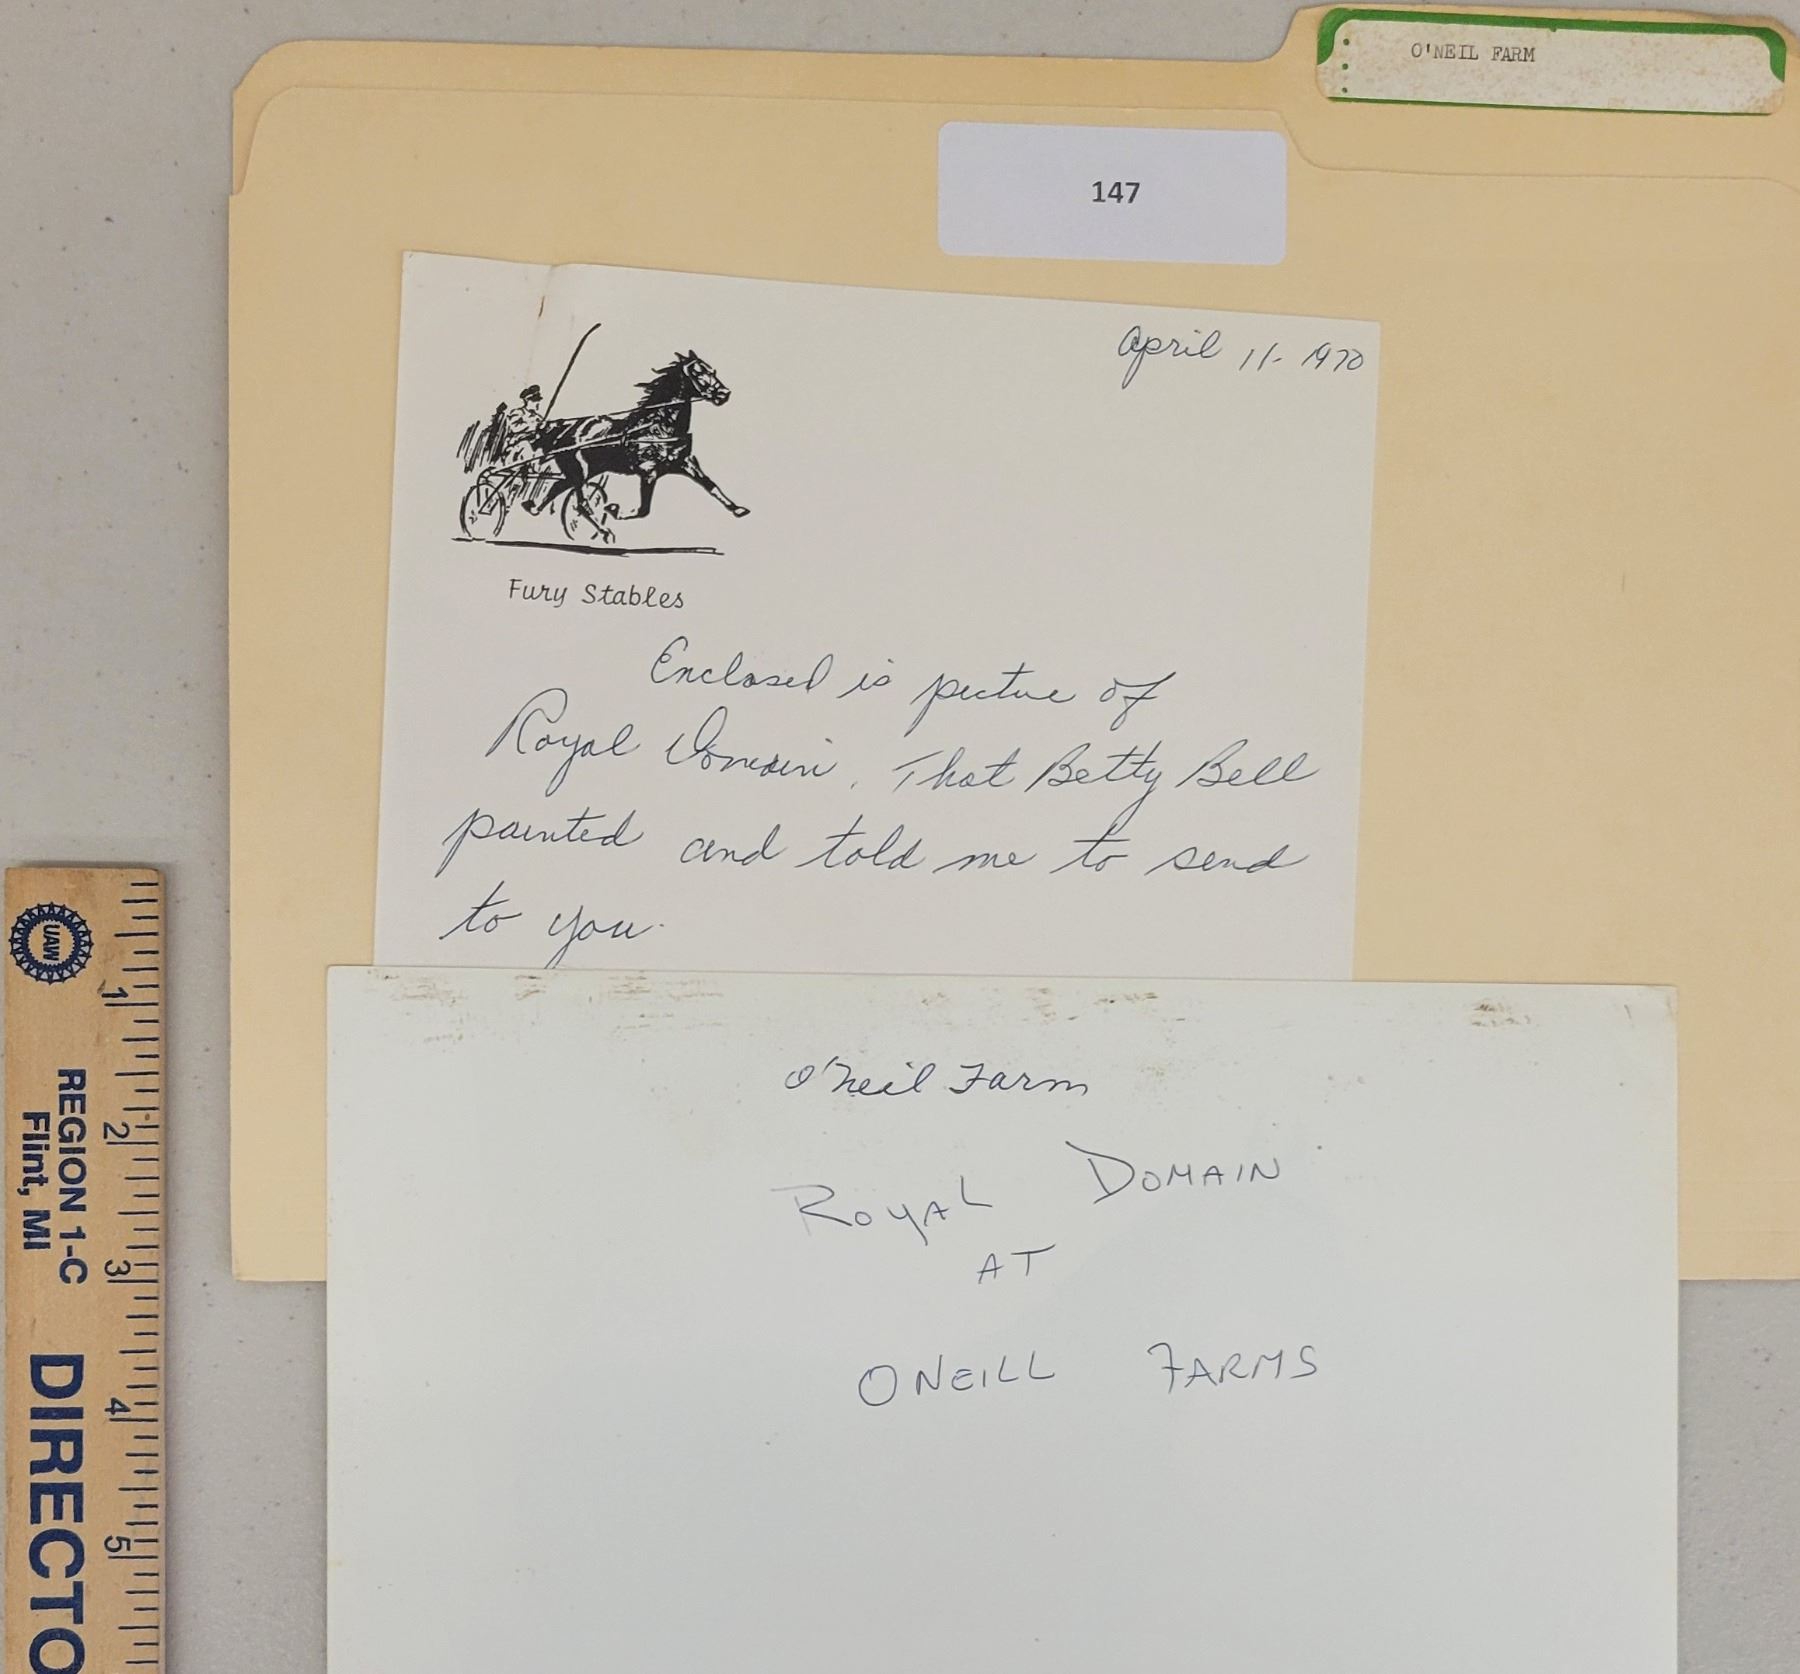 O'NEIL FARM
147
April 11- 1970
Fury Stables
Enclosed is picture of
Royal Domain. That Betty Bell
painted and told me to send
to you.
O'Neil Farm
ROYAL DOMAIN
AT
ONEILL FARMS
UAW
REGION 1-C
Flint, MI
DIRECTO
1
2
3
4
5